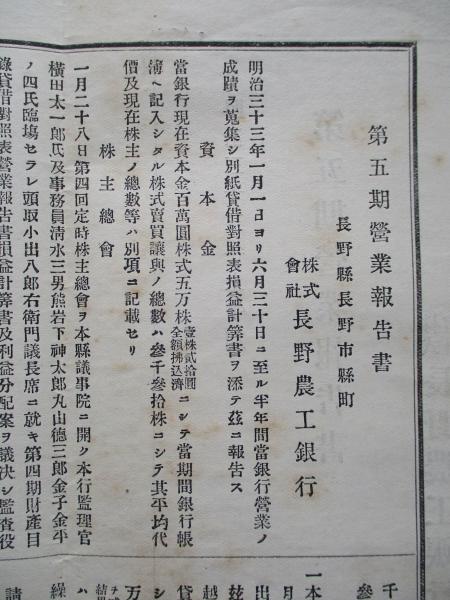 第五期營業報告書
長野縣長野市縣町
株式會社 長野農工銀行
明治三十三年一月一日ヨリ六月三十日ニ至ル半年間當銀行營業ノ
成蹟ヲ蒐集シ別紙貸借對照表損益計筭書ヲ添テ茲ニ報告ス
資本金
當銀行現在資本金百萬圓株式五万株壹株貳拾圓全額拂込濟ニシテ當期間銀行帳
簿ヘ記入シタル株式賣買讓與ノ總數ハ參千參拾株ニシテ其平均代
價及現在株主ノ總數等ハ別項ニ記載セリ
株主總會
一月二十八日第四回定時株主總會ヲ本縣議事院ニ開ク本行監理官
橫田太一郎氏及事務員清水三男熊岩下神太郎丸山德三郎金子金平
ノ四氏臨塲セラレ頭取小出八郎右衛門議長席ニ就キ第四期財產目
錄貸借對照表營業報告書損益計筭書及利益分配案ヲ議決シ監査役
千
參
一本
月
出
茲
越
貸
シ
万
ハ
繰
請